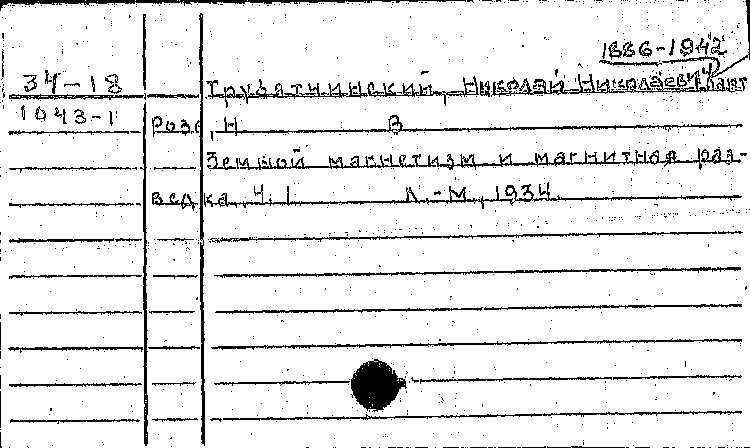 1886-1942
34-18 Трубятчинский, Николай Николаевич
1043-1 Розе, Н В
Земной магнетизм и магнитная раз-
ведка, Ч. I Л.-М., 1934